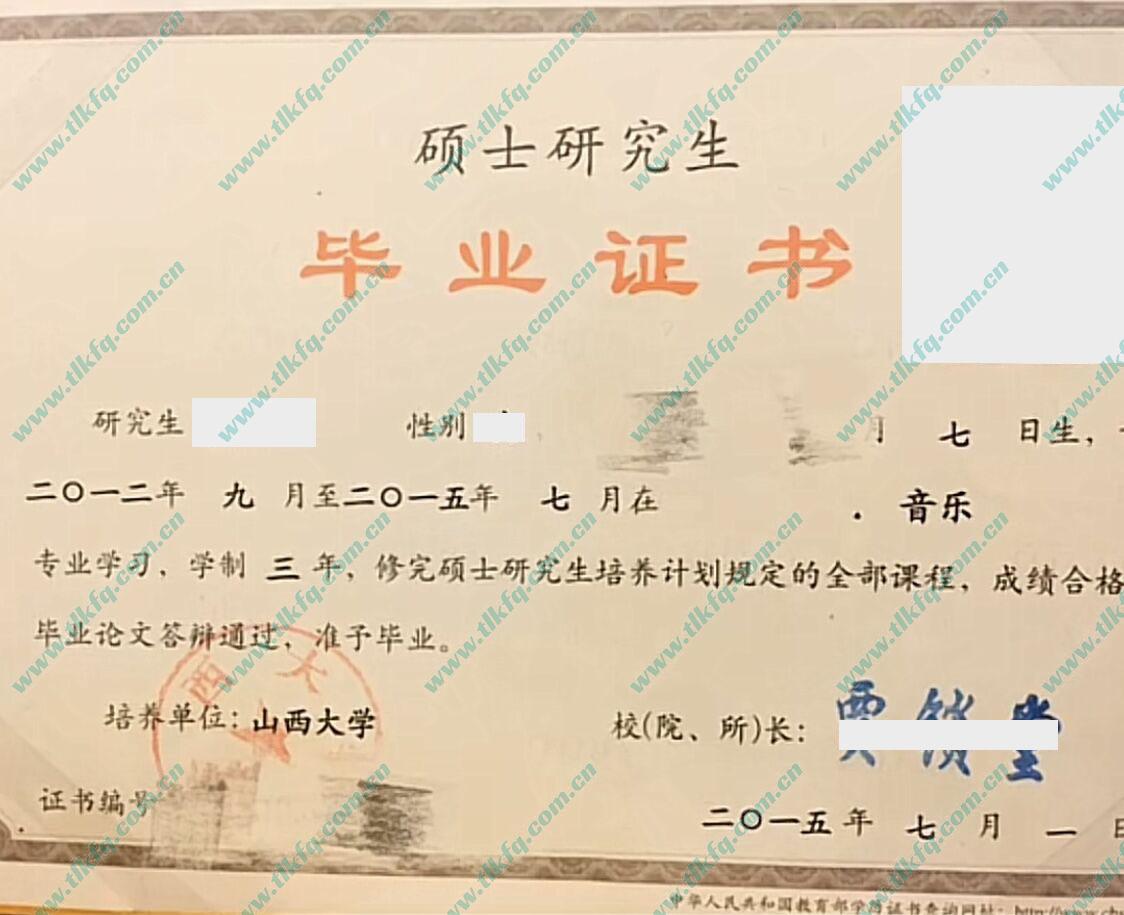 硕士研究生
毕业证书
研究生 性别 月 七 日生，
二〇一二年 九 月至二〇一五年 七 月在 音乐
专业学习，学制 三 年，修完硕士研究生培养计划规定的全部课程，成绩合格
毕业论文答辩通过，准予毕业。
西大
培养单位：山西大学 校(院、所)长：
证书编号
二〇一五年 七 月 一 日
中华人民共和国教育部学历证书查询网址：http://www.ch
www.tlkfq.com.cn